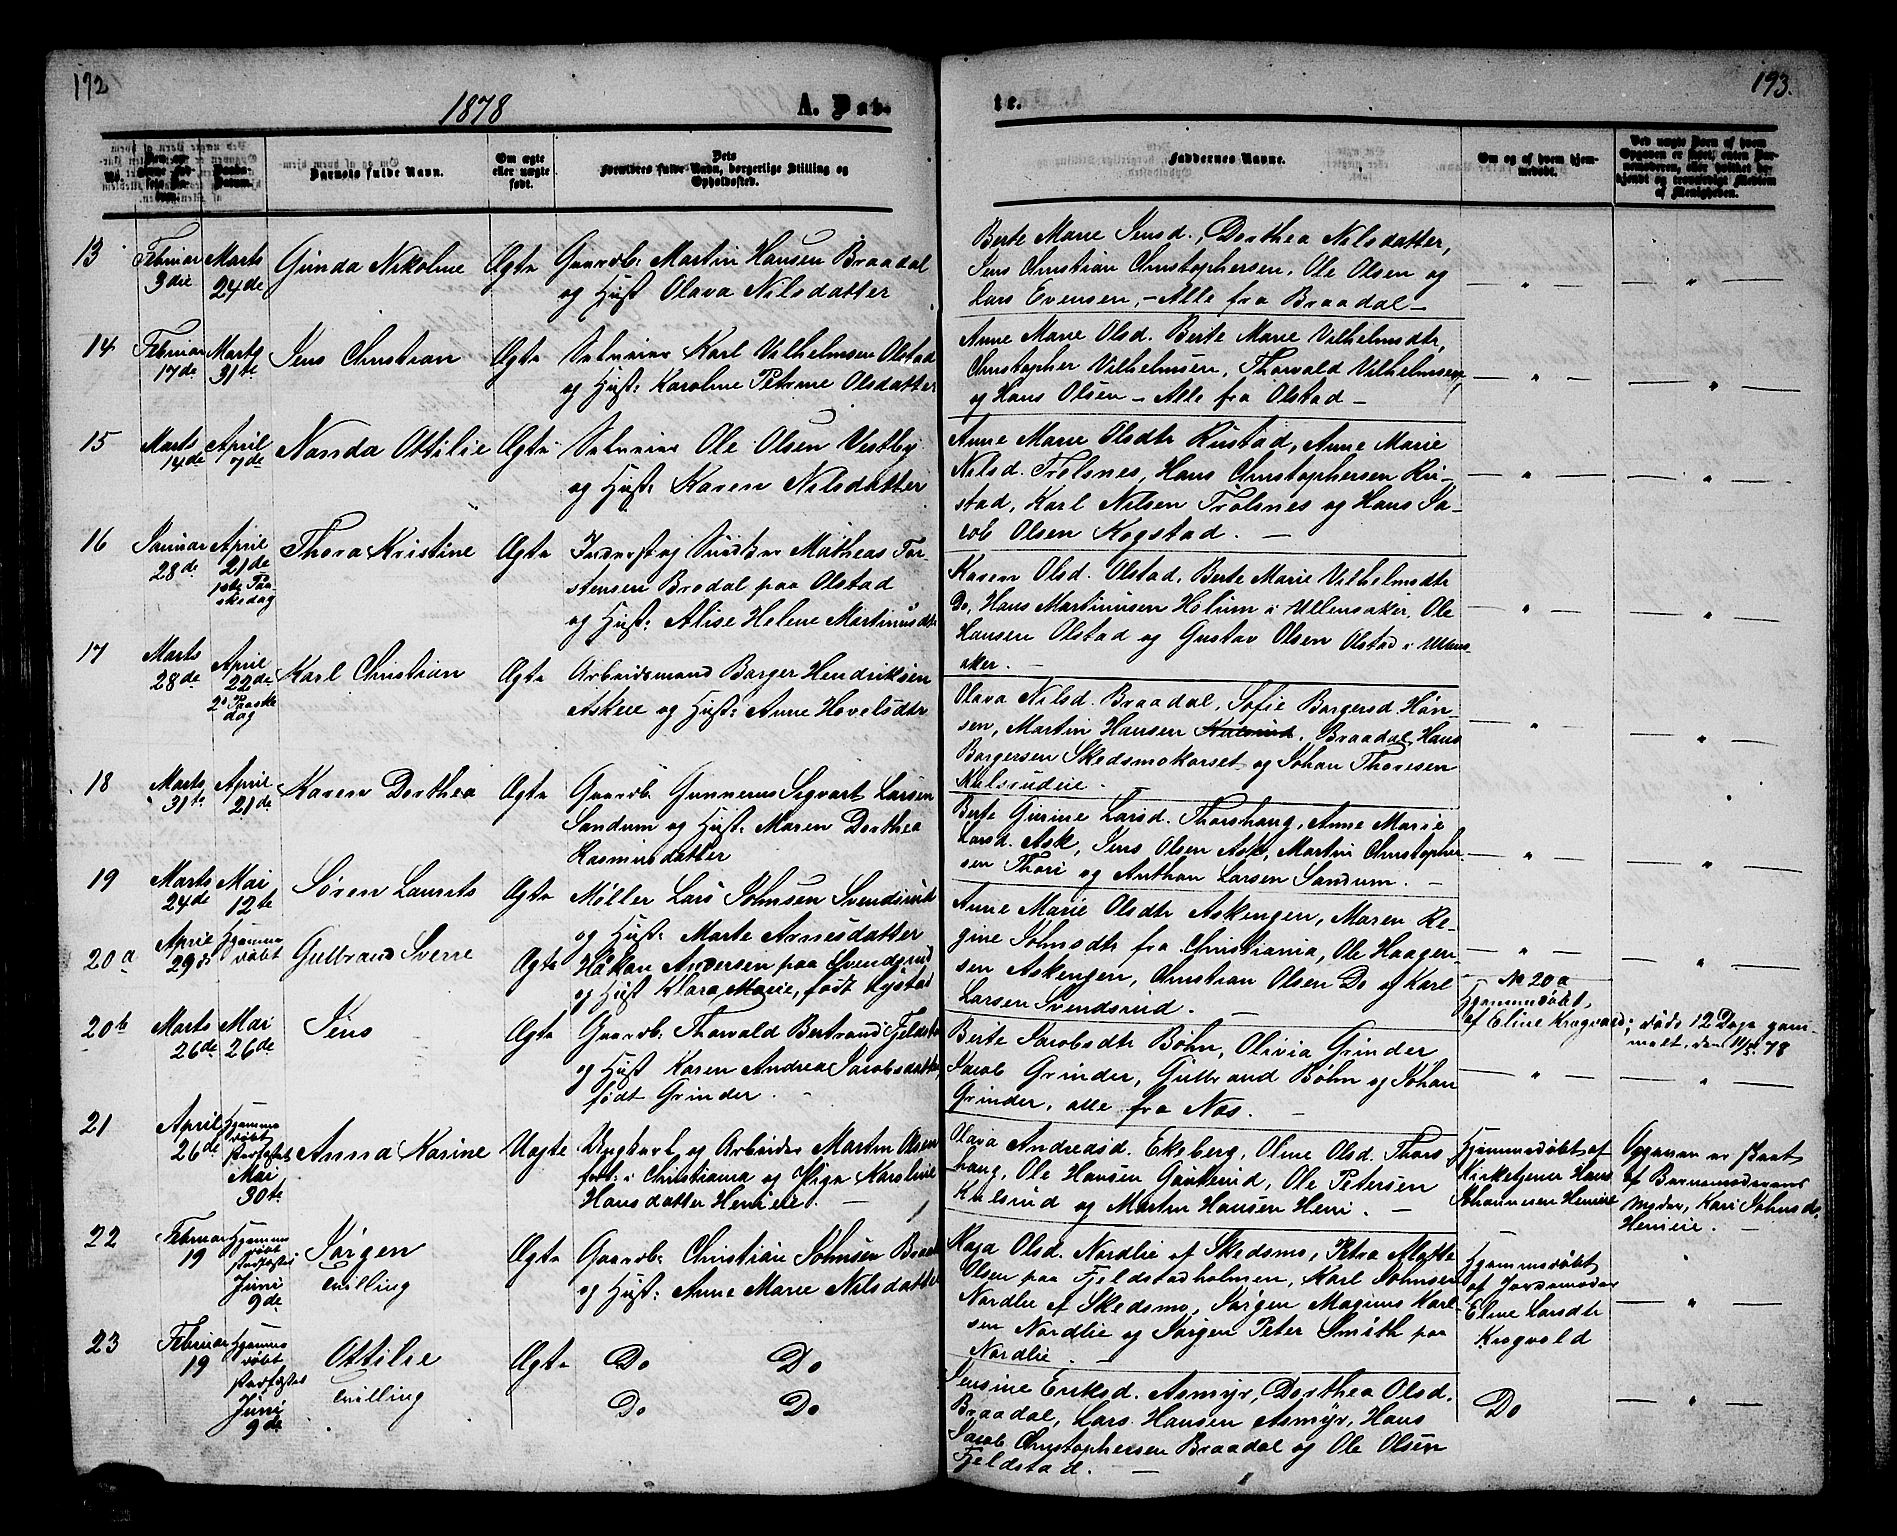 192
1878
A. Døb-
No.
Barnets fulde Navn.
Om ægte eller uægte født.
Forældres fulde Navn, borgerlige Stilling og Opholdssted.
13
Februar 3die
Marts 24de
Gunda Nikoline
Ægte
Gaardb. Martin Hansen Braadal
og Hust Olava Nilsdatter
14
Februar 17de
Marts 31te
Jens Christian
Ægte
Selveier Karl Vilhelmsen Olstad
og Hust: Karoline Petrine Olsdatter
15
Marts 14de
April 7de
Nanda Ottilie
Ægte
Selveier Ole Olsen Vestby
og Hust: Karen Nilsdatter
16
Januar 28de
April 21de 1ste Paaskedag
Thora Kristine
Ægte
Inderst og Snedker Matheas Tor-
stensen Brodal paa Olstad
og Hust: Alise Helene Martinusdtr
17
Marts 28de
April 22de 2den Paaskedag
Karl Christian
Ægte
Arbeidsmand Borger Hendriksen
Askeie og Hust: Anne Hovelsdtr
18
Marts 31te
April 21de
Karen Dorthea
Ægte
Gaardb. Gunnerus Sigvart Larsen
Sandum og Hust: Maren Dorthea
Rasmusdatter
19
Marts 24de
Mai 12te
Søren Laurits
Ægte
Møller Lars Johnsen Svendsrud
og Hust: Marte Arnesdatter
20a
April 29de
Hjemmedøbt
Gulbrand Sverre
Ægte
Håkon Andersen paa Svendsrud
og Hust Klara Marie, født Nystad
20b
Marts 26de
Mai 26de
Jens
Ægte
Gaardb. Thorvald Bertrand Fjeldstad
og Hust Karen Andrea Jacobsdatter,
født Grinder.
21
April 26de
Hjemmedøbt stadfæstet Mai 30te
Anna Karine
Uægte
Ungkarl og Arbeider Martin Olsen
født i Christiania og Pige Karoline
Hansdatter Henieie. —
22
Februar 19
Hjemmedøbt stadfæstet Juni 9de
Jørgen
tvilling
Ægte
Gaardb: Christian Johnsen Braadal
og Hust: Anne Marie Nilsdatter
23
Februar 19
Hjemmedøbt stadfæstet Juni 9de
Ottilie
tvilling
Ægte
Do Do
Do Do
193.
te.
Faddernes Navne.
Om og af hvem hjemmedøbt.
Berte Marie Jensd., Dorthea Nilsdatter,
Jens Christian Christophersen, Ole Olsen og
Lars Evensen, — Alle fra Braadal —
Anne Marie Olsd. Berte Marie Vilhelmsdtr,
Christopher Vilhelmsen, Thorvald Vilhelmsen
og Hans Olsen — Alle fra Olstad —
Anne Marie Olsdtr Rustad, Anne Marie
Nilsd. Trølsnes, Hans Christophersen Ru-
stad, Karl Nilsen Trølsnes og Hans Ja-
cob Olsen Kogstad. —
Karen Olsd. Olstad, Berte Marie Vilhelmsdtr
Do, Hans Martinusen Holum i Ullensaker, Ole
Hansen Olstad og Gustav Olsen Olstad i Ullens-
aker. —
Olava Nilsd. Braadal, Sofie Borgersd. Han-
sen, Martin Hansen Kulsrud, Braadal, Hans
Borgersen Skedsmokorset og Johan Thoresen
Kulsrudeie.
Berte Gurine Larsd. Thorshaug, Anne Marie
Larsd. Ask, Jens Olsen Ask, Martin Christopher-
sen Thori og Anthon Larsen Sandum. —
Anne Marie Olsdtr Askengen, Maren Re-
gine Johnsdtr fra Christiania, Ole Haagen-
sen Askengen, Christian Olsen Do og Karl
Larsen Svendsrud. —
No 20a
Hjemmedøbt,
af Eline Kragvold; døde 12 Dage gam-
melt, den 11/5 78
Berte Jacobsdtr Bøhn, Olivia Grinder
Jacob Grinder, Gulbrand Bøhn og Johan
Grinder, alle fra Næs. —
Olava Andreasd. Ekeberg, Oline Olsd. Thors-
haug, Ole Hansen Gauterud, Ole Petersen
Kulsrud og Martin Hansen Heni. —
Hjemmedøbt af
Kirketjener Hans
Johannesen Henieie
Opgaven er skeet
af Barnemoderens
Moder, Kari Johnsd.
Henieie. —
Kaja Olsd. Nordlie af Skedsmo, Petra
Olsen paa Fjeldstadholmen, Karl Johnsen
Nordlie af Skedsmo, Jørgen Magnus Karl-
sen Nordlie og Jørgen Peter Smith paa
Nordlie. —
Hjemmedøbt
af Jordemoder
Eline Larsdtr
Kragvold
Jensine Eriksd. Asmyr, Dorthea Olsd.
Braadal, Lars Hansen Asmyr, Hans
Jacob Christophersen Braadal og Ole Olsen
Fjeldstad. —
Do